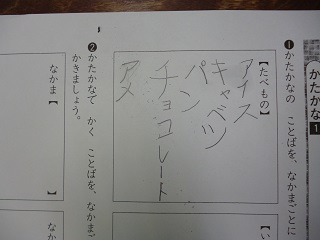 かたかな 1
❶ かたかなの ことばを、なかまごとに
【たべもの】
アイス
キャベツ
パン
チョコレート
アメ
【い
❷ かたかなで かく ことばを、なかまご
かきましょう。
なかま【
なか